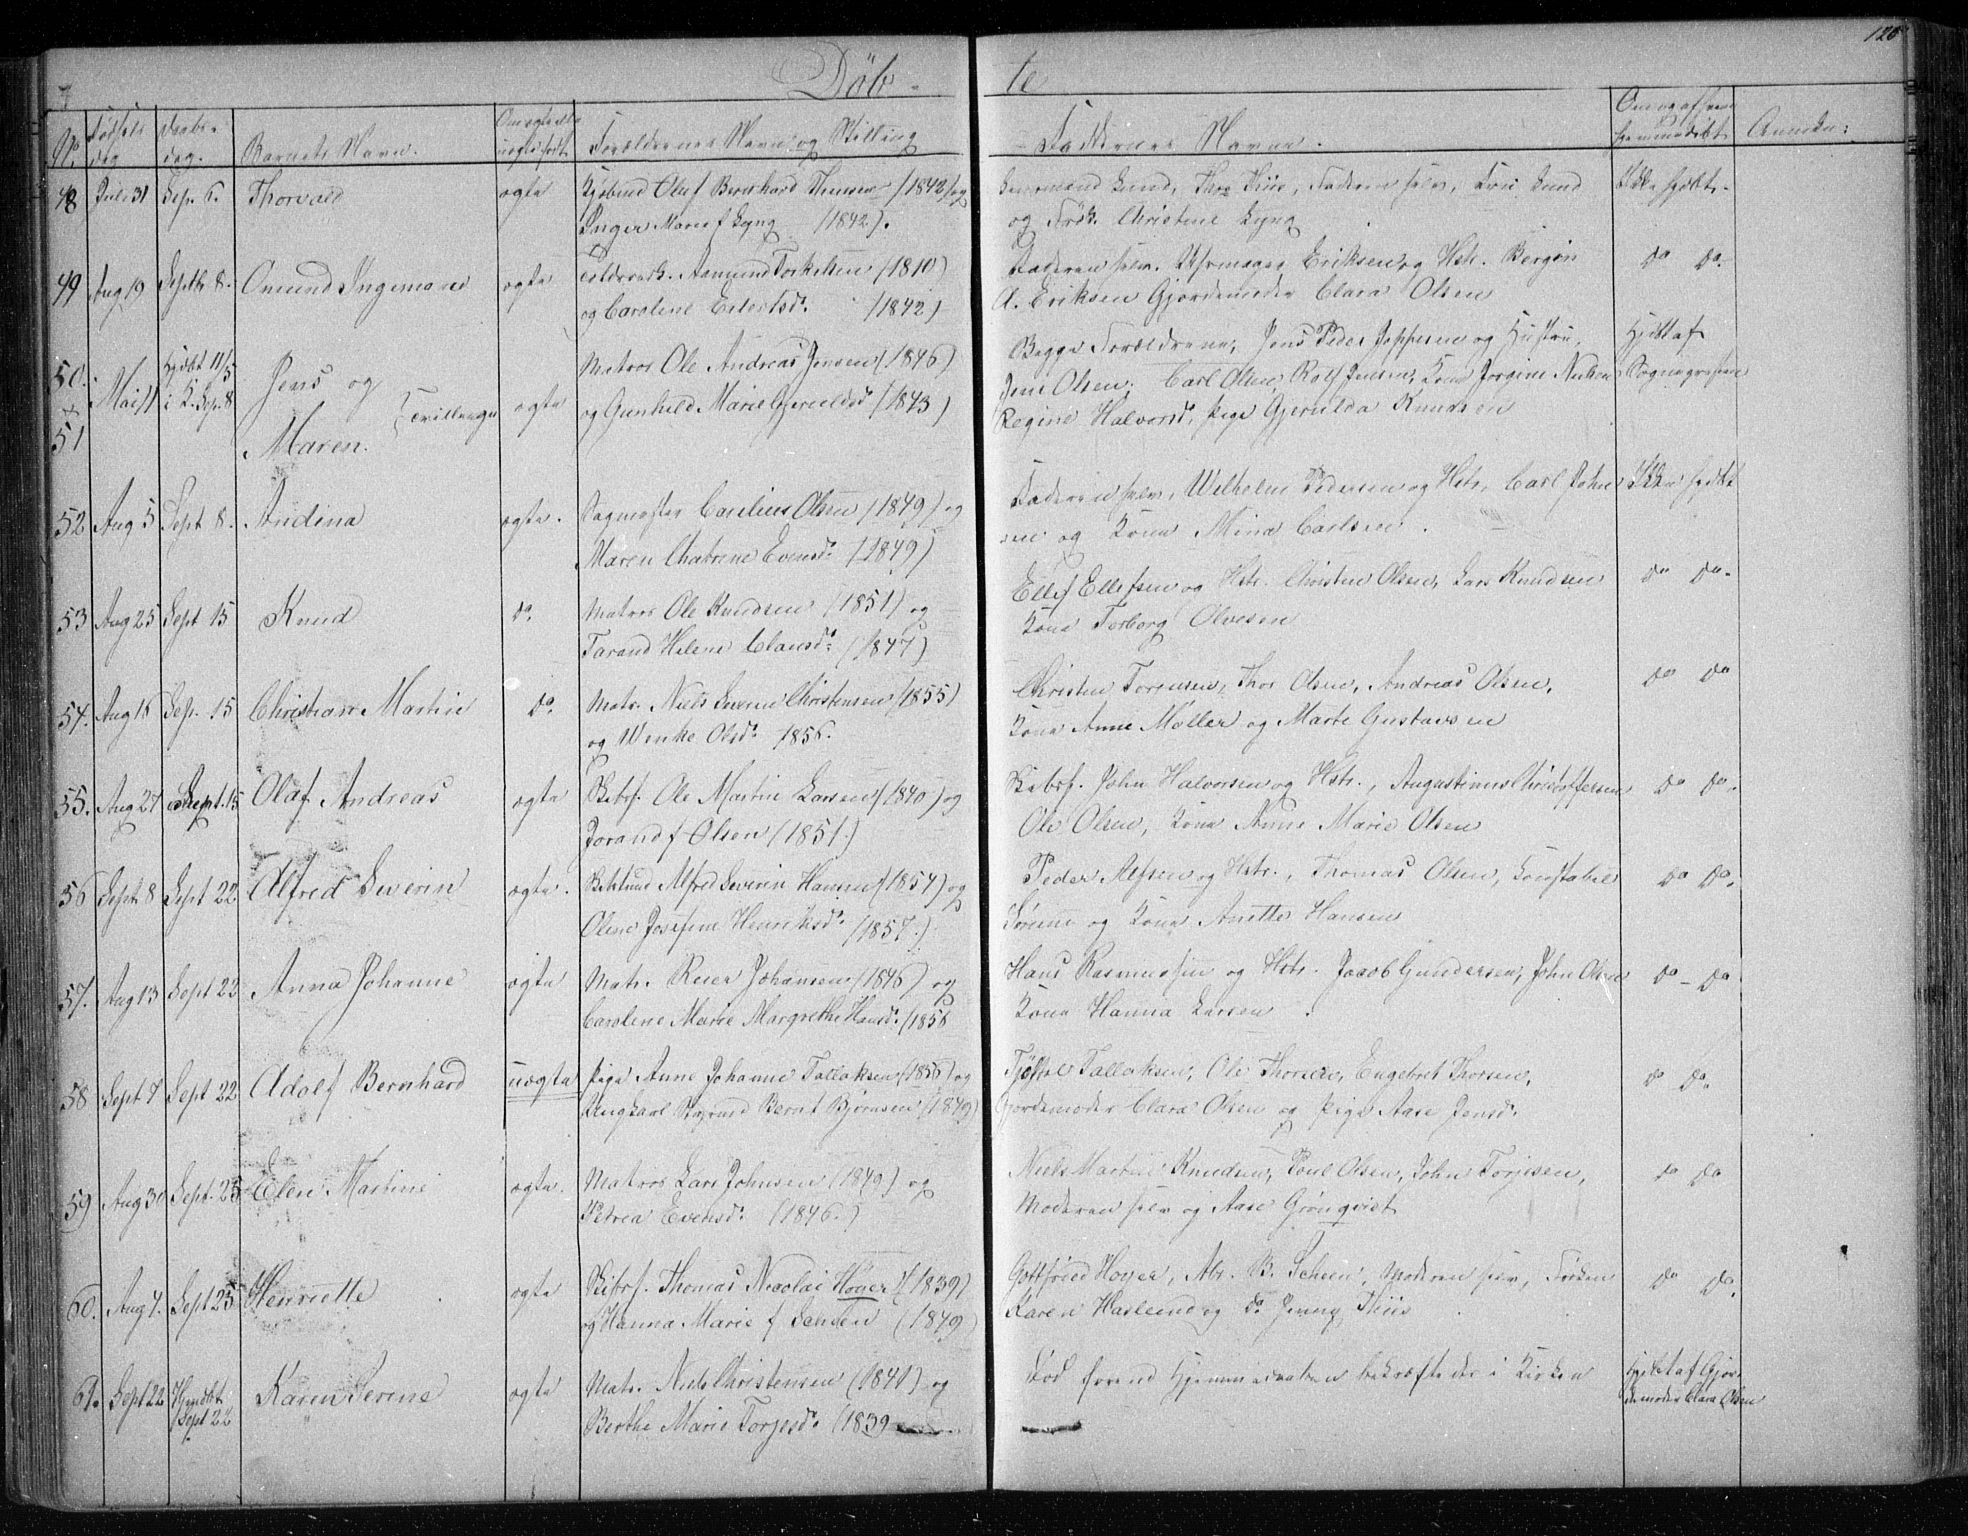 Døb-te
120
No
Fødsels dag
Daabs-dag.
Barnets Navn.
Forældrenes Navn og Stilling
Faddernes Navne.
Anmrkn:
48 Juli 31 Sep. 6. Thorvald ægte Kjøbmd Oluf Bernhard Thensen (1842) og
Inger Marie f Lyng (1842).
Lund, Thor Thiis, Faderen selv, Fru Lund
og Frøk. Christine Lyng
Ikke hjdbt.
49 Aug 19 Septbr 8. Omund Ingemann ægte Toldvesk. Aamund Torkelsen (1810)
og Caroline Eilertsd. (1842)
Faderen selv. Uhrmager Eriksen og Hstr. Bergin
A. Eriksen Gjordemoder Clara Olsen
do do.
50. + 51 Mai 11 Hjdbt 11/5 i K. Sep. 8 Jens og
Maren. Tvillinger
ægte
Matros Ole Andreas Jensen (1846)
og Gunhild Marie Gjeruldsd (1843)
Begge Forældrene, Jens Peder Jeppesen og Hustru,
Jens Olsen. Carl Olsen, Rolf Jensen, Kone Jørgine Nielsen
Regine Halvorsd, pige Gjerulda Knudsen
Hjdbt af
Sognepræsten
52 Aug 5 Sept 8. Andina ægte. Sagmester Carelius Olsen (1849) og
Maren Chatrine Evensd. (1849)
Faderen selv, Wilhelm Pedersen og Hstr, Carl John
sen og Kone Mina Carlsen.
Ikke hjdbt
53 Aug 25 Sept 15 Knud do. Matros Ole Knudsen (1851) og
Tarand Helene Clausd. (1847)
Ellef Ellefsen og Hstr. Christen Olsen, Lars Knudsen
Kone Torborg Olvesen
do do.
54. Aug 16 Sep. 15 Christian Martin do. Matr. Niels Severin Christensen (1855)
og Wenke Olsd. 1856.
Christen Torjensen, Thor Olsen, Andreas Olsen,
Kone Anne Møller og Marte Gustavsen
do do
55. Aug 27 Sept. 15 Olaf Andreas ægte Skibsf. Ole Martin Larsen (1840) og
Jorand f Olsen (1851.)
Skibsf. John Halvorsen og Hstr., Augustinus Christoffersen
Ole Olsen, Kone Anne Marie Olsen
do do.
56 Sept 8 Sept 22 Alfred Severin ægte. Alfred Severin Hansen (1854) og
Oline Josefine Henriksd. (1857.)
Peder Alfsen og Hstr., Thomas Olsen, Konstabel
Sørene og Kone Anette Hansen
do do.
57. Aug 13 Sept 22 Anna Johanne ægte Matr. Reier Johansen (1846) og
Caroline Marie Margrethe Hansd. (1856
Hans Rasmussen og Hstr. Jacob Gundersen, John Olsen
Kone Hanna Larsen.
do - do
58 Sept 7 Sept 22 Adolf Bernhard uægte pige Anne Johanne Tallaksen (1856) og
Ungkarl Styrmd Bernt Bjørnsen (1849)
Tjøstol Tallaksen, Ole Thorsen, Engebret Thorsen,
Gjordemoder Clara Olsen og pige Aase Jensd.
do do.
59 Aug 30 Sept. 25 Elen Martine ægte. Matros Lars Johnsen (1849) og
Petrea Evensd. (1846.)
Niels Martin Knudsen, Poul Olsen, John Torjesen,
Moderen selv og Aase Grønqvist
do do
60. Aug 4. Sept 25 Henriette ægte Skibsf. Thomas Nicolai Hoyer (1839)
og Hanna Marie f Jensen (1849)
Gottfried Hoyer, Abr. B. Scheen, Moderen selv, Frøken
Karen Haslund og do. Jenny Thiis
do do.
61. Sept 22 Hjmdbt Sept 22 Karen Serine ægte Matr. Niels Christensen (1841) og
Berthe Marie Torjesd. (1839
Død førend Hjemmedaaben bekræftedes i Kirken
Hjdbt af Gjor-
demoder Clara Olsen